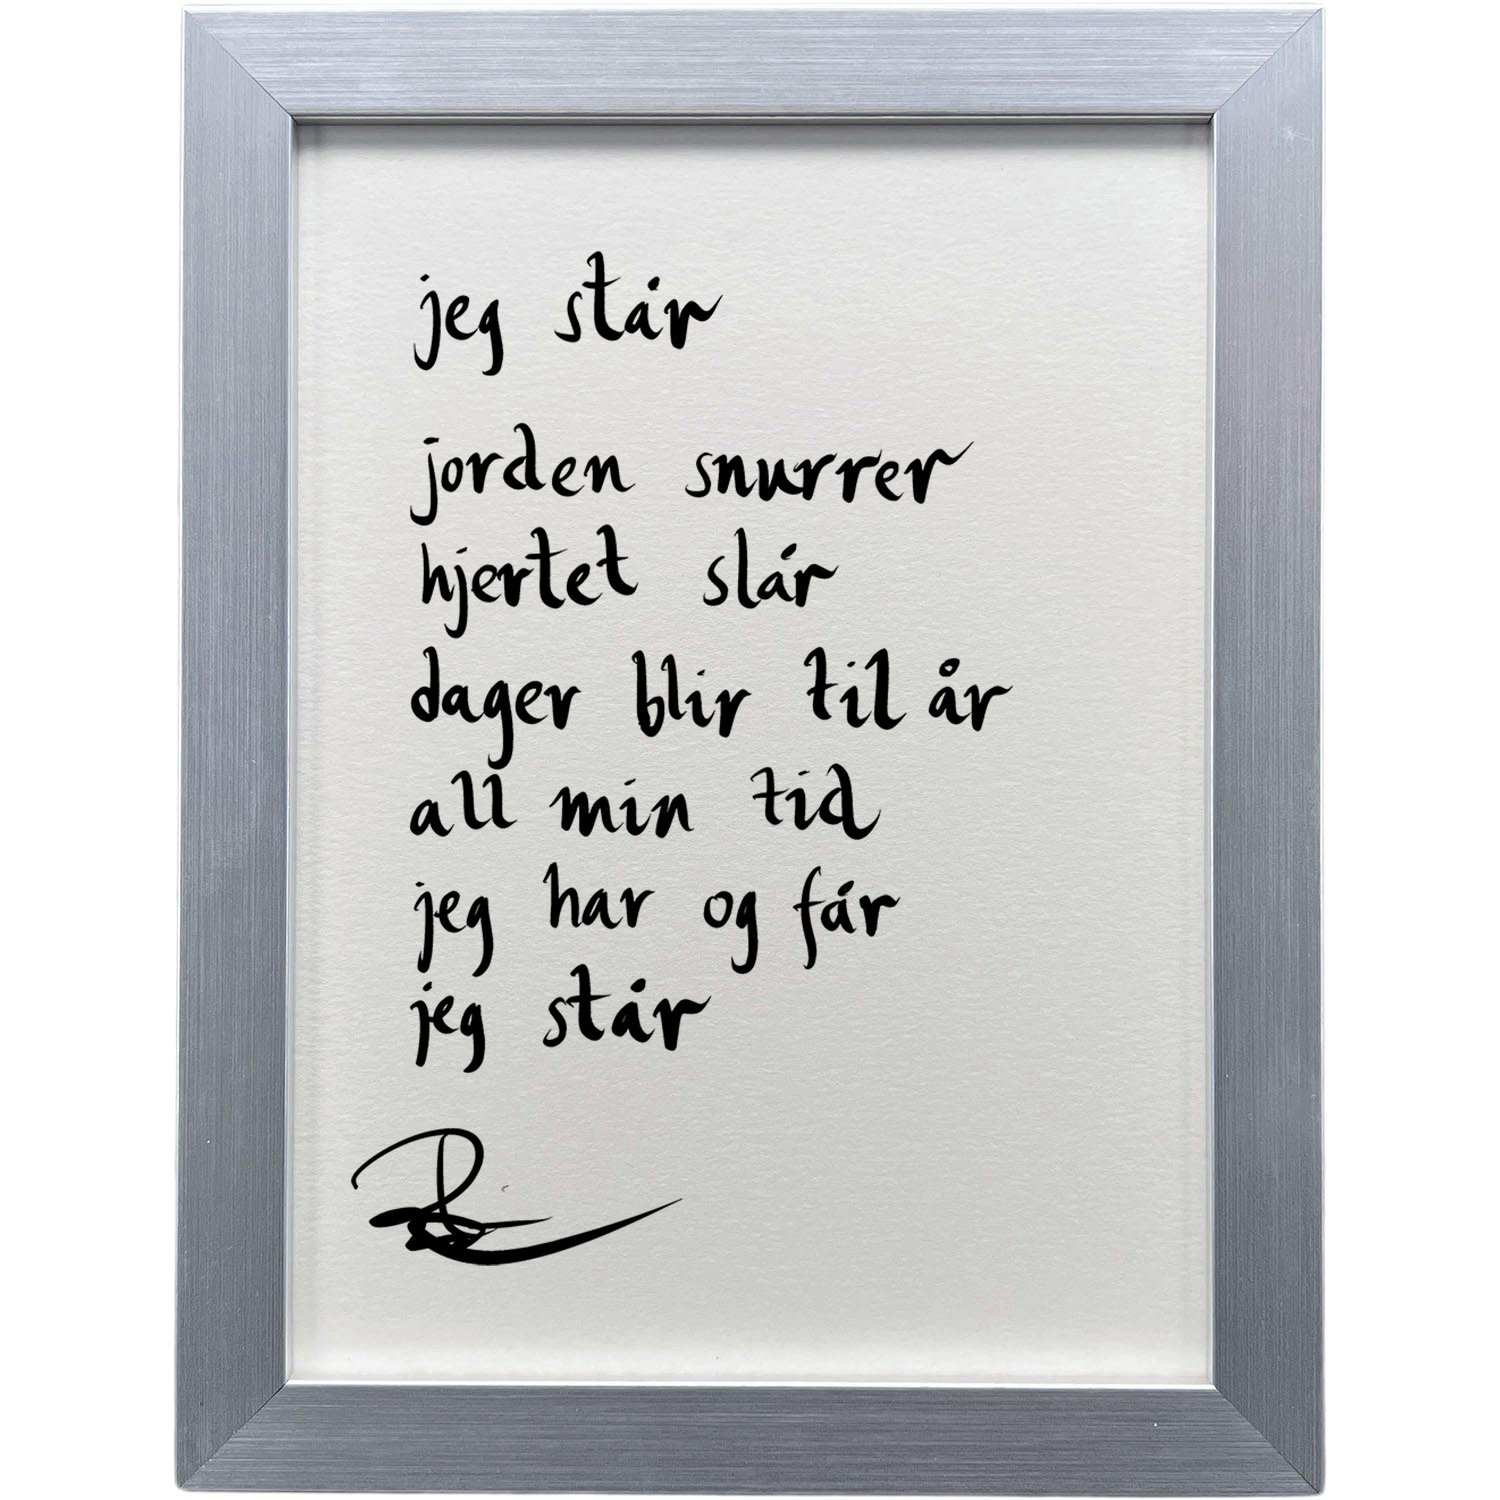 jeg står
jorden snurrer
hjertet slår
dager blir til år
all min tid
jeg har og får
jeg står